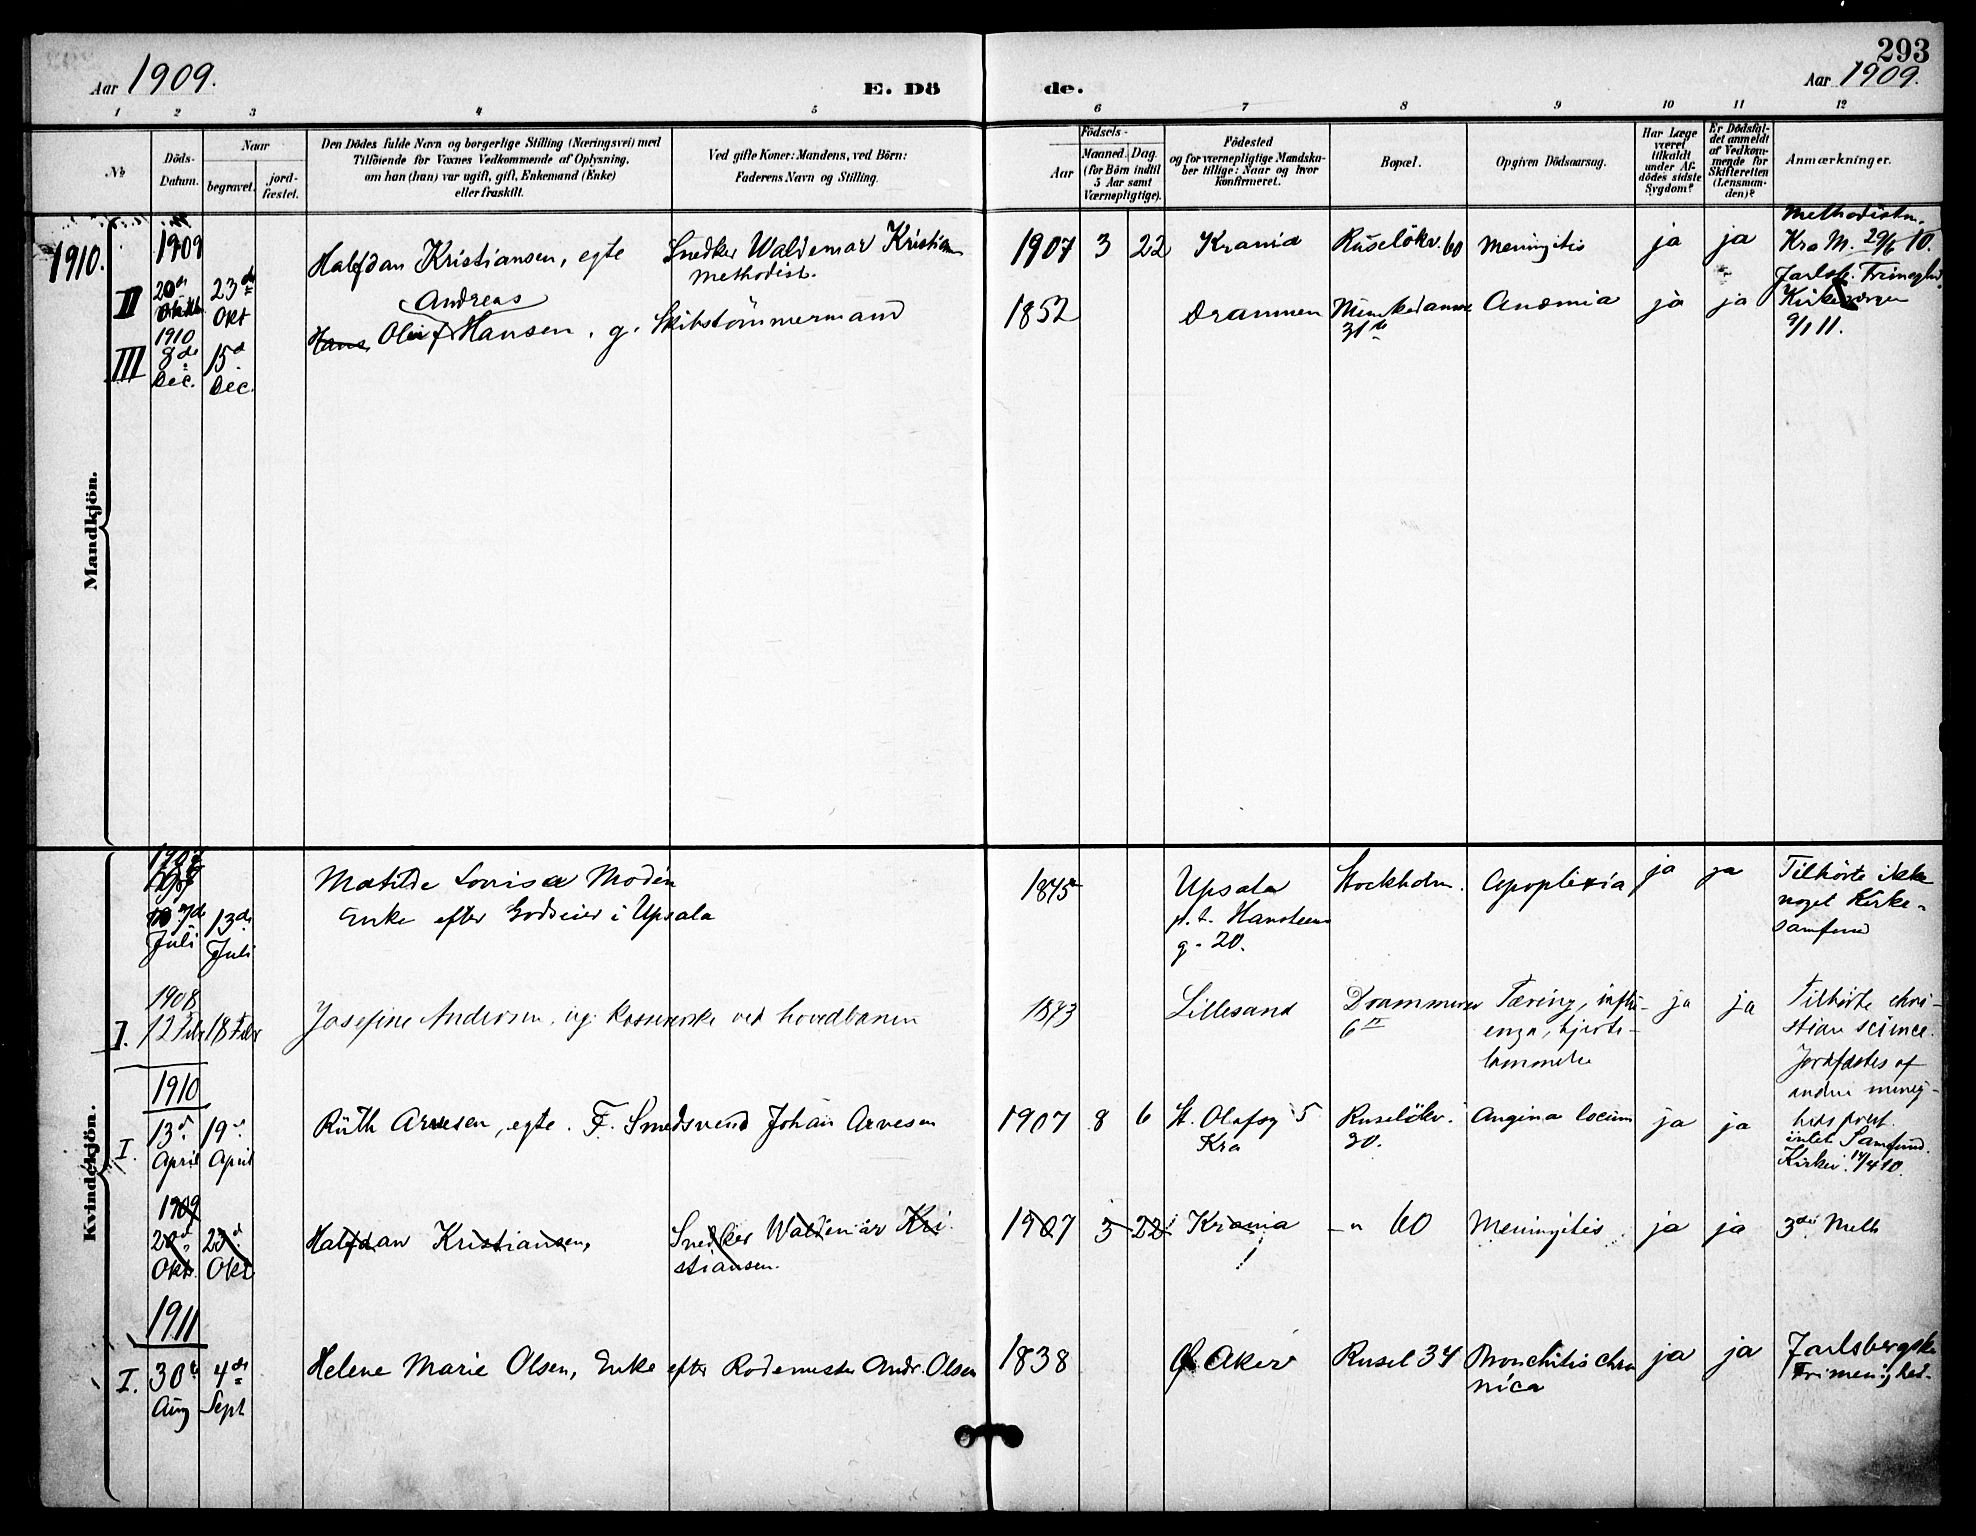 293
Aar 1909.
E. Dö
de.
Aar 1909.
1 2 3 4 5 6 7 8 9 10 11 12
№
Döds-
Datum.
Naar
begravet.
jord-
fæstet.
Den Dödes fulde Navn og borgerlige Stilling (Næringsvei) med
Tilföiende for Voxnes Vedkommende af Oplysning,
om han (hun) var ugift, gift, Enkemand (Enke)
eller fraskilt.
Ved gifte Koner: Mandens, ved Börn:
Faderens Navn og Stilling.
Födsels-
Aar
Maaned. Dag.
(for Börn indtil
5 Aar samt
Værnepligtige).
Födested
og for værnepligtige Mandska-
ber tillige: Naar og hvor
konfirmeret.
Bopæl.
Opgiven Dödsaarsag.
Har Læge
været
tilkaldt
under Af-
dödes sidste
Sygdom?
Er Dödsfal-
det anmeldt
af Vedkom-
mende for
Skifteretten
(Lensman-
den)?
Anmærkninger.
Mandkjön.
1910.
1909
II 20de 23de
Okt
Halfdan Kristiansen, egte
Snedker Waldemar Kristian
methodist.
1907 3 22 Krania Ruselökv. 60 Meningitis ja ja
Methodistm.
Kra M. 29/6 10.
1910
III 8de 15d
Dec. Dec.
Andreas
Hans Oluf Hansen, g. Skibstömmermand
1852 Drammen Munkedamsv
31b
Anæmia ja ja
Jarlsb. Frimeghd.
Kirkeværgen
9/1 11.
Kvindekjön.
7de 13de
Juli Juli
Matilde Lovisa Modin
Enke efter Godseier i Upsala
1845
Upsala
p.t. Hansteens
g. 20.
Stockholm. Apoplexia ja ja
Tilhörte ikke
noget Kirke-
samfund
1908
I. 12 Febr 18 Febr
Josefine Andersen, ug. kasserske ved hovedbanen
1873 Lillesand Drammensv
6 II
Tæring, influ-
enza, hjerte-
lammelse
ja ja
Tilhörte chri-
stian science.
Jordfæstes af
andre menig-
heds prest.
1910
I. 13d 19d
April April
Ruth Arvesen, egte. F. Smedsvend Johan Arvesen
1907 8 6 St. Olafsg 5
Kra
Ruselökv.
20.
Angina ja ja
intet Samfund.
Kirkev. 14/4 10.
1909
20d 23d
Okt. Okt
Halfdan Kristiansen,
Snedker Waldemar Kri
stiansen.
1907 3 22 Krania
-" 60 Meningitis ja ja 3die Meth
1911
I. 30te 4de
Aug Sept
Helene Marie Olsen, Enke efter Rodemester Andr. Olsen
1838 Aker Rusel 34 Bronchitis chro
nica
ja ja
Jarlsbergske
Frimenighed.